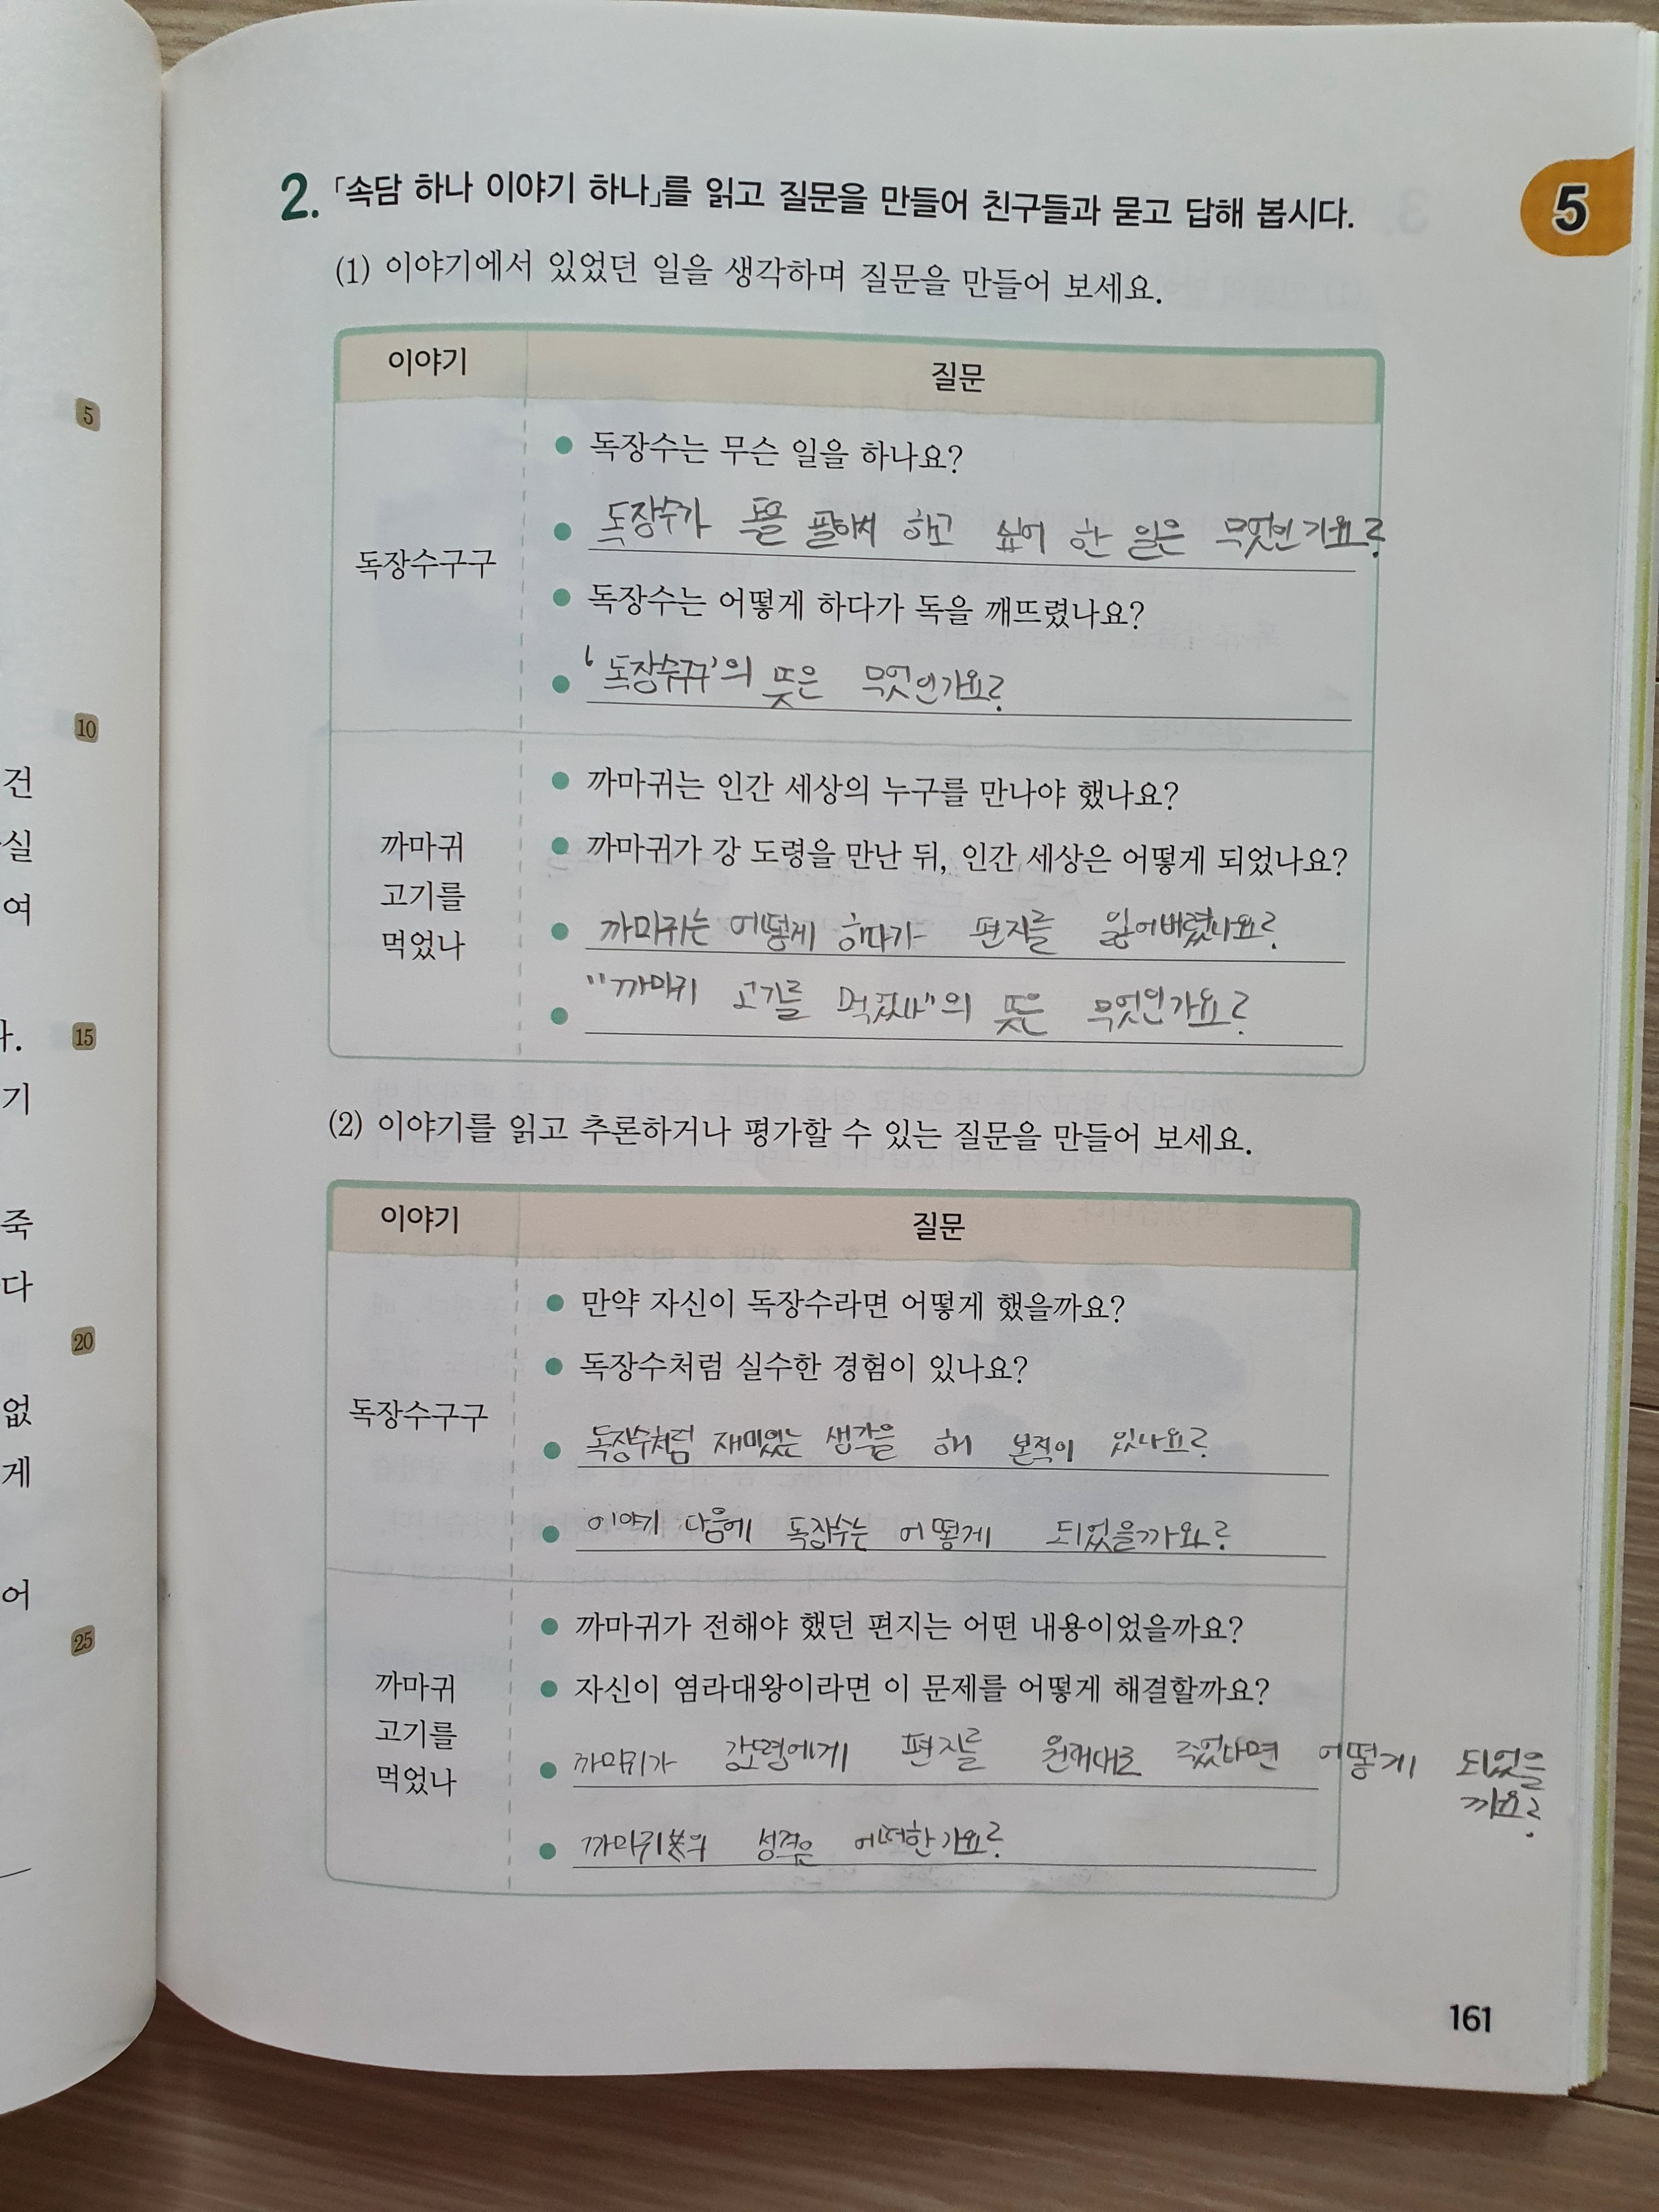 2. 「속담 하나 이야기 하나」를 읽고 질문을 만들어 친구들과 묻고 답해 봅시다.
5
(1) 이야기에서 있었던 일을 생각하며 질문을 만들어 보세요.
이야기 질문
독장수구구
독장수는 무슨 일을 하나요?
독장수가 독을 팔아서 하고 싶어 한 일은 무엇인가요?
독장수는 어떻게 하다가 독을 깨뜨렸나요?
'독장수구구'의 뜻은 무엇인가요?
까마귀
고기를
먹었나
까마귀는 인간 세상의 누구를 만나야 했나요?
까마귀가 강 도령을 만난 뒤, 인간 세상은 어떻게 되었나요?
까마귀는 어떻게 하다가 편지를 잃어버렸나요?
"까마귀 고기를 먹었나"의 뜻은 무엇인가요?
(2) 이야기를 읽고 추론하거나 평가할 수 있는 질문을 만들어 보세요.
이야기 질문
독장수구구
만약 자신이 독장수라면 어떻게 했을까요?
독장수처럼 실수한 경험이 있나요?
독장수처럼 재미있는 생각을 해 본적이 있나요?
이야기 다음에 독장수는 어떻게 되었을까요?
까마귀
고기를
먹었나
까마귀가 전해야 했던 편지는 어떤 내용이었을까요?
자신이 염라대왕이라면 이 문제를 어떻게 해결할까요?
까마귀가 강도령에게 편지를 원래대로 주었다면 어떻게 되었을
까요?
까마귀의 성격은 어떠한가요?
161
5
10
건
실
여
다.
15
기
죽
다
20
없
게
어
25